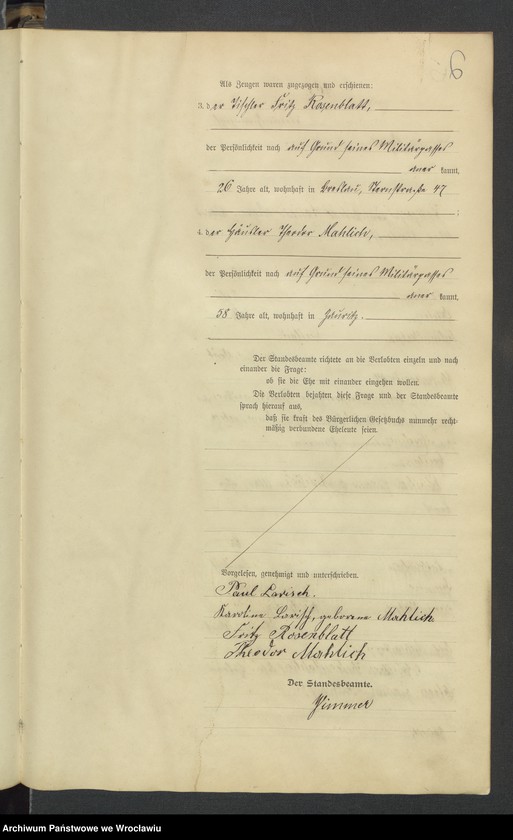 6
Als Zeugen waren zugezogen und erschienen:
3. der Tischler Fritz Rosenblatt,
der Persönlichkeit nach auf Grund seines Militärpasses
aner kannt,
26 Jahre alt, wohnhaft in Breslau, Sternstraße 47
;
4. der Häusler Theodor Mahlich,
der Persönlichkeit nach auf Grund seines Militärpasses
aner kannt,
58 Jahre alt, wohnhaft in
Der Standesbeamte richtete an die Verlobten einzeln und nach
einander die Frage:
ob sie die Ehe mit einander eingehen wollen.
Die Verlobten bejahten diese Frage und der Standesbeamte
sprach hierauf aus,
daß sie kraft des Bürgerlichen Gesetzbuchs nunmehr recht-
mäßig verbundene Eheleute seien.
Vorgelesen, genehmigt und unterschrieben.
Paul Larisch.
Karoline Larisch, geborene Mahlich
Fritz Rosenblatt
Theodor Mahlich
Der Standesbeamte.
Zimmer
Archiwum Państwowe we Wrocławiu